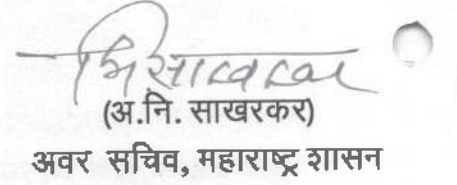 (अ.नि. साखरकर)
अवर सचिव, महाराष्ट्र शासन